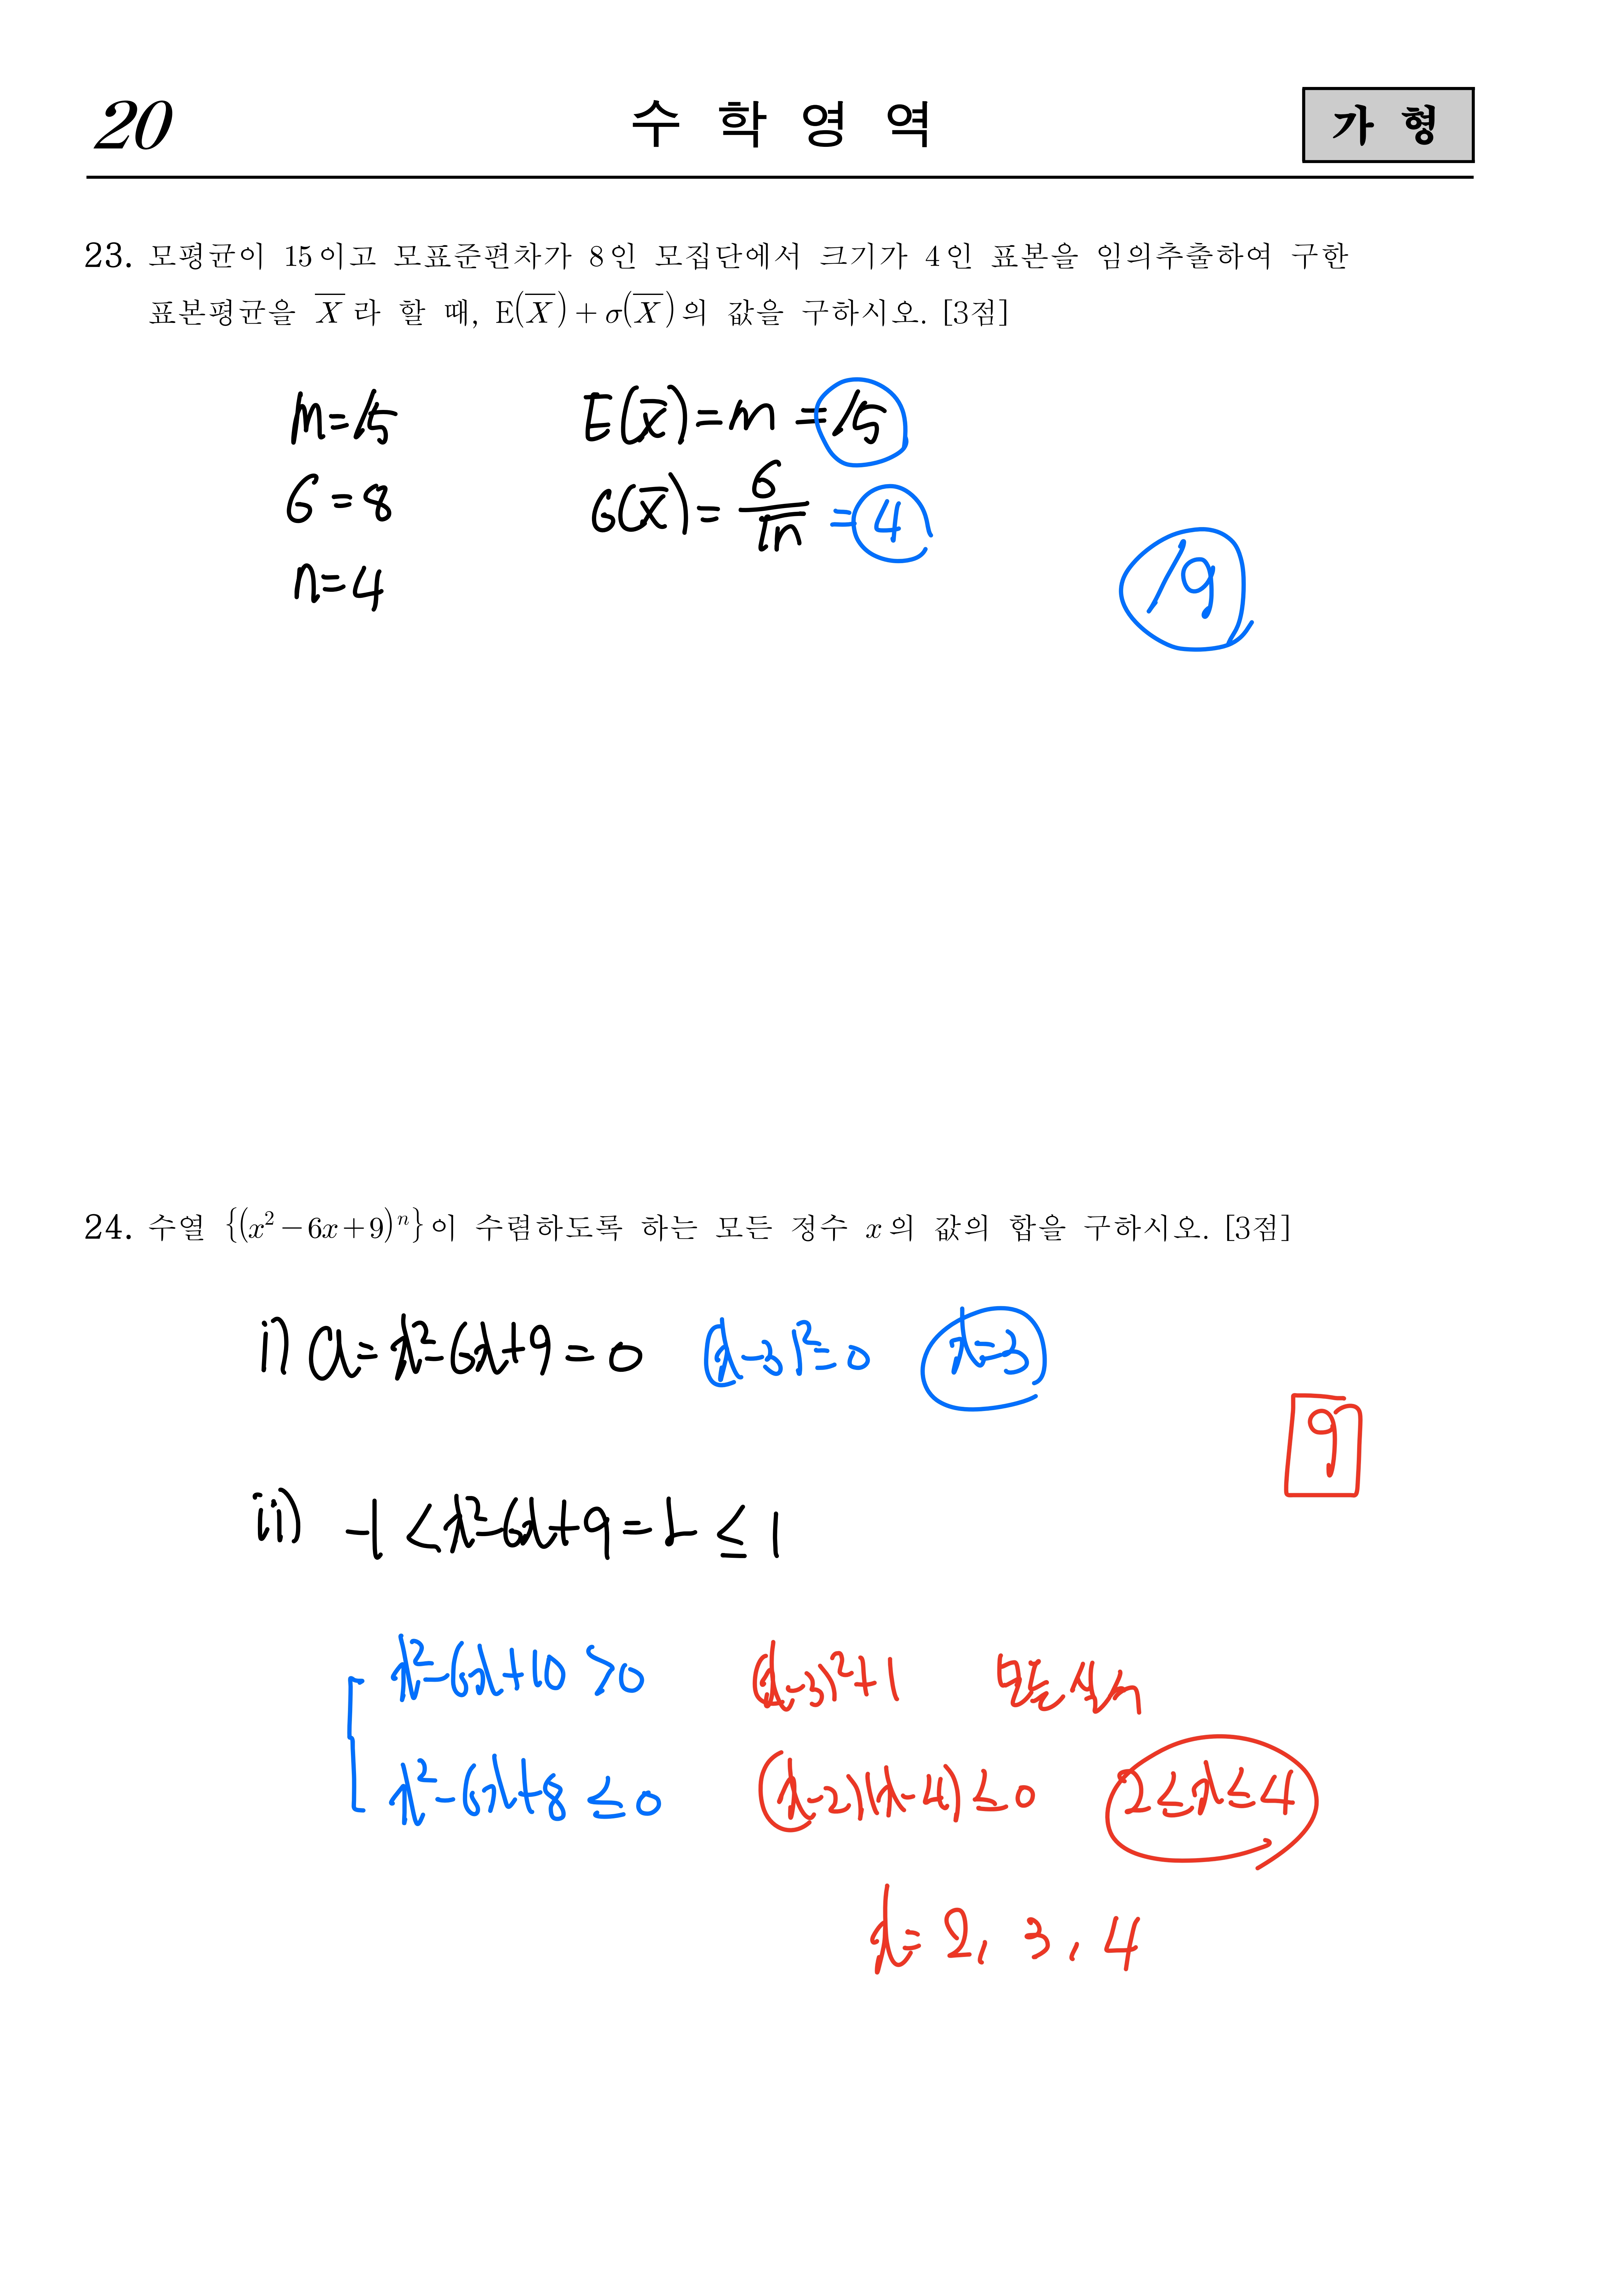 20 수 학 영 역 가 형
23. 모평균이 15이고 모표준편차가 8인 모집단에서 크기가 4인 표본을 임의추출하여 구한
표본평균을 X̅라 할 때, E(X̅)+σ(X̅)의 값을 구하시오. [3점]
m=15 E(X̅)=m=15
σ=8 σ(X̅)=σ/√n=4
n=4
19
24. 수열 {(x²-6x+9)ⁿ}이 수렴하도록 하는 모든 정수 x의 값의 합을 구하시오. [3점]
i) a=x²-6x+9=0 (x-3)²=0 x=3
9
ii) -1<x²-6x+9=r≤1
x²-6x+10>0 (x-3)²+1 모든 실수
x²-6x+8≤0 (x-2)(x-4)≤0 2≤x≤4
x=2, 3, 4